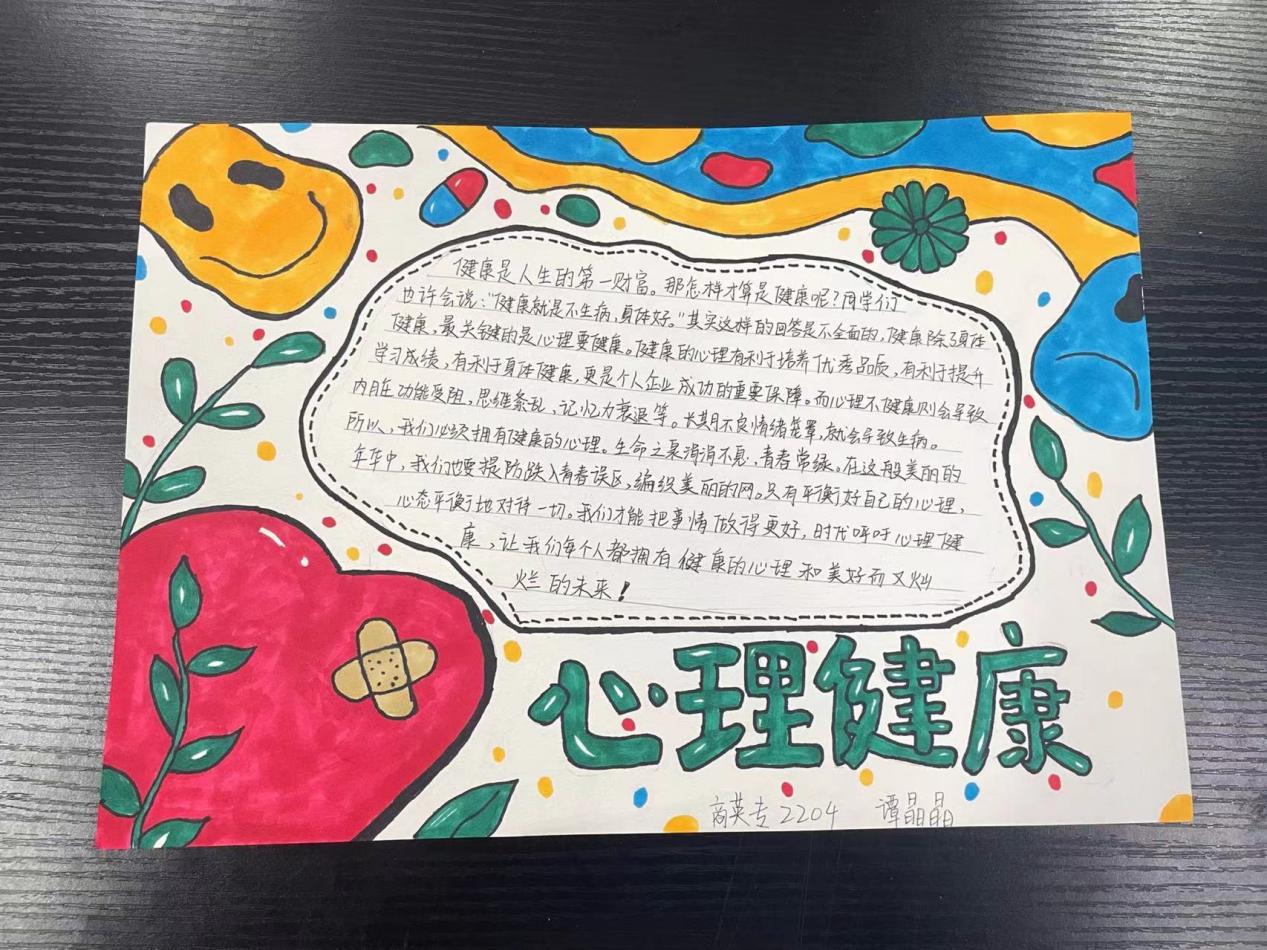 健康是人生的第一财富。那怎样才算是健康呢?同学们
也许会说:"健康就是不生病,身体好。"其实这样的回答是不全面的,健康除了身体
健康,最关键的是心理要健康。健康的心理有利于培养优秀品质,有利于提升
学习成绩,有利于身体健康,更是个人企业成功的重要保障。而心理不健康则会导致
内脏功能受阻,思维紊乱,记忆力衰退等。长期不良情绪笼罩,就会导致生病。
所以,我们必须拥有健康的心理。生命之泉涓涓不息,青春常绿。在这般美丽的
年华中,我们也要提防跌入青春误区,编织美丽的网。只有平衡好自己的心理,
心态平衡地对待一切。我们才能把事情做得更好,时代呼吁心理健
康,让我们每个人都拥有健康的心理和美好而又灿
烂的未来!
心理健康
商英专2204 谭晶晶